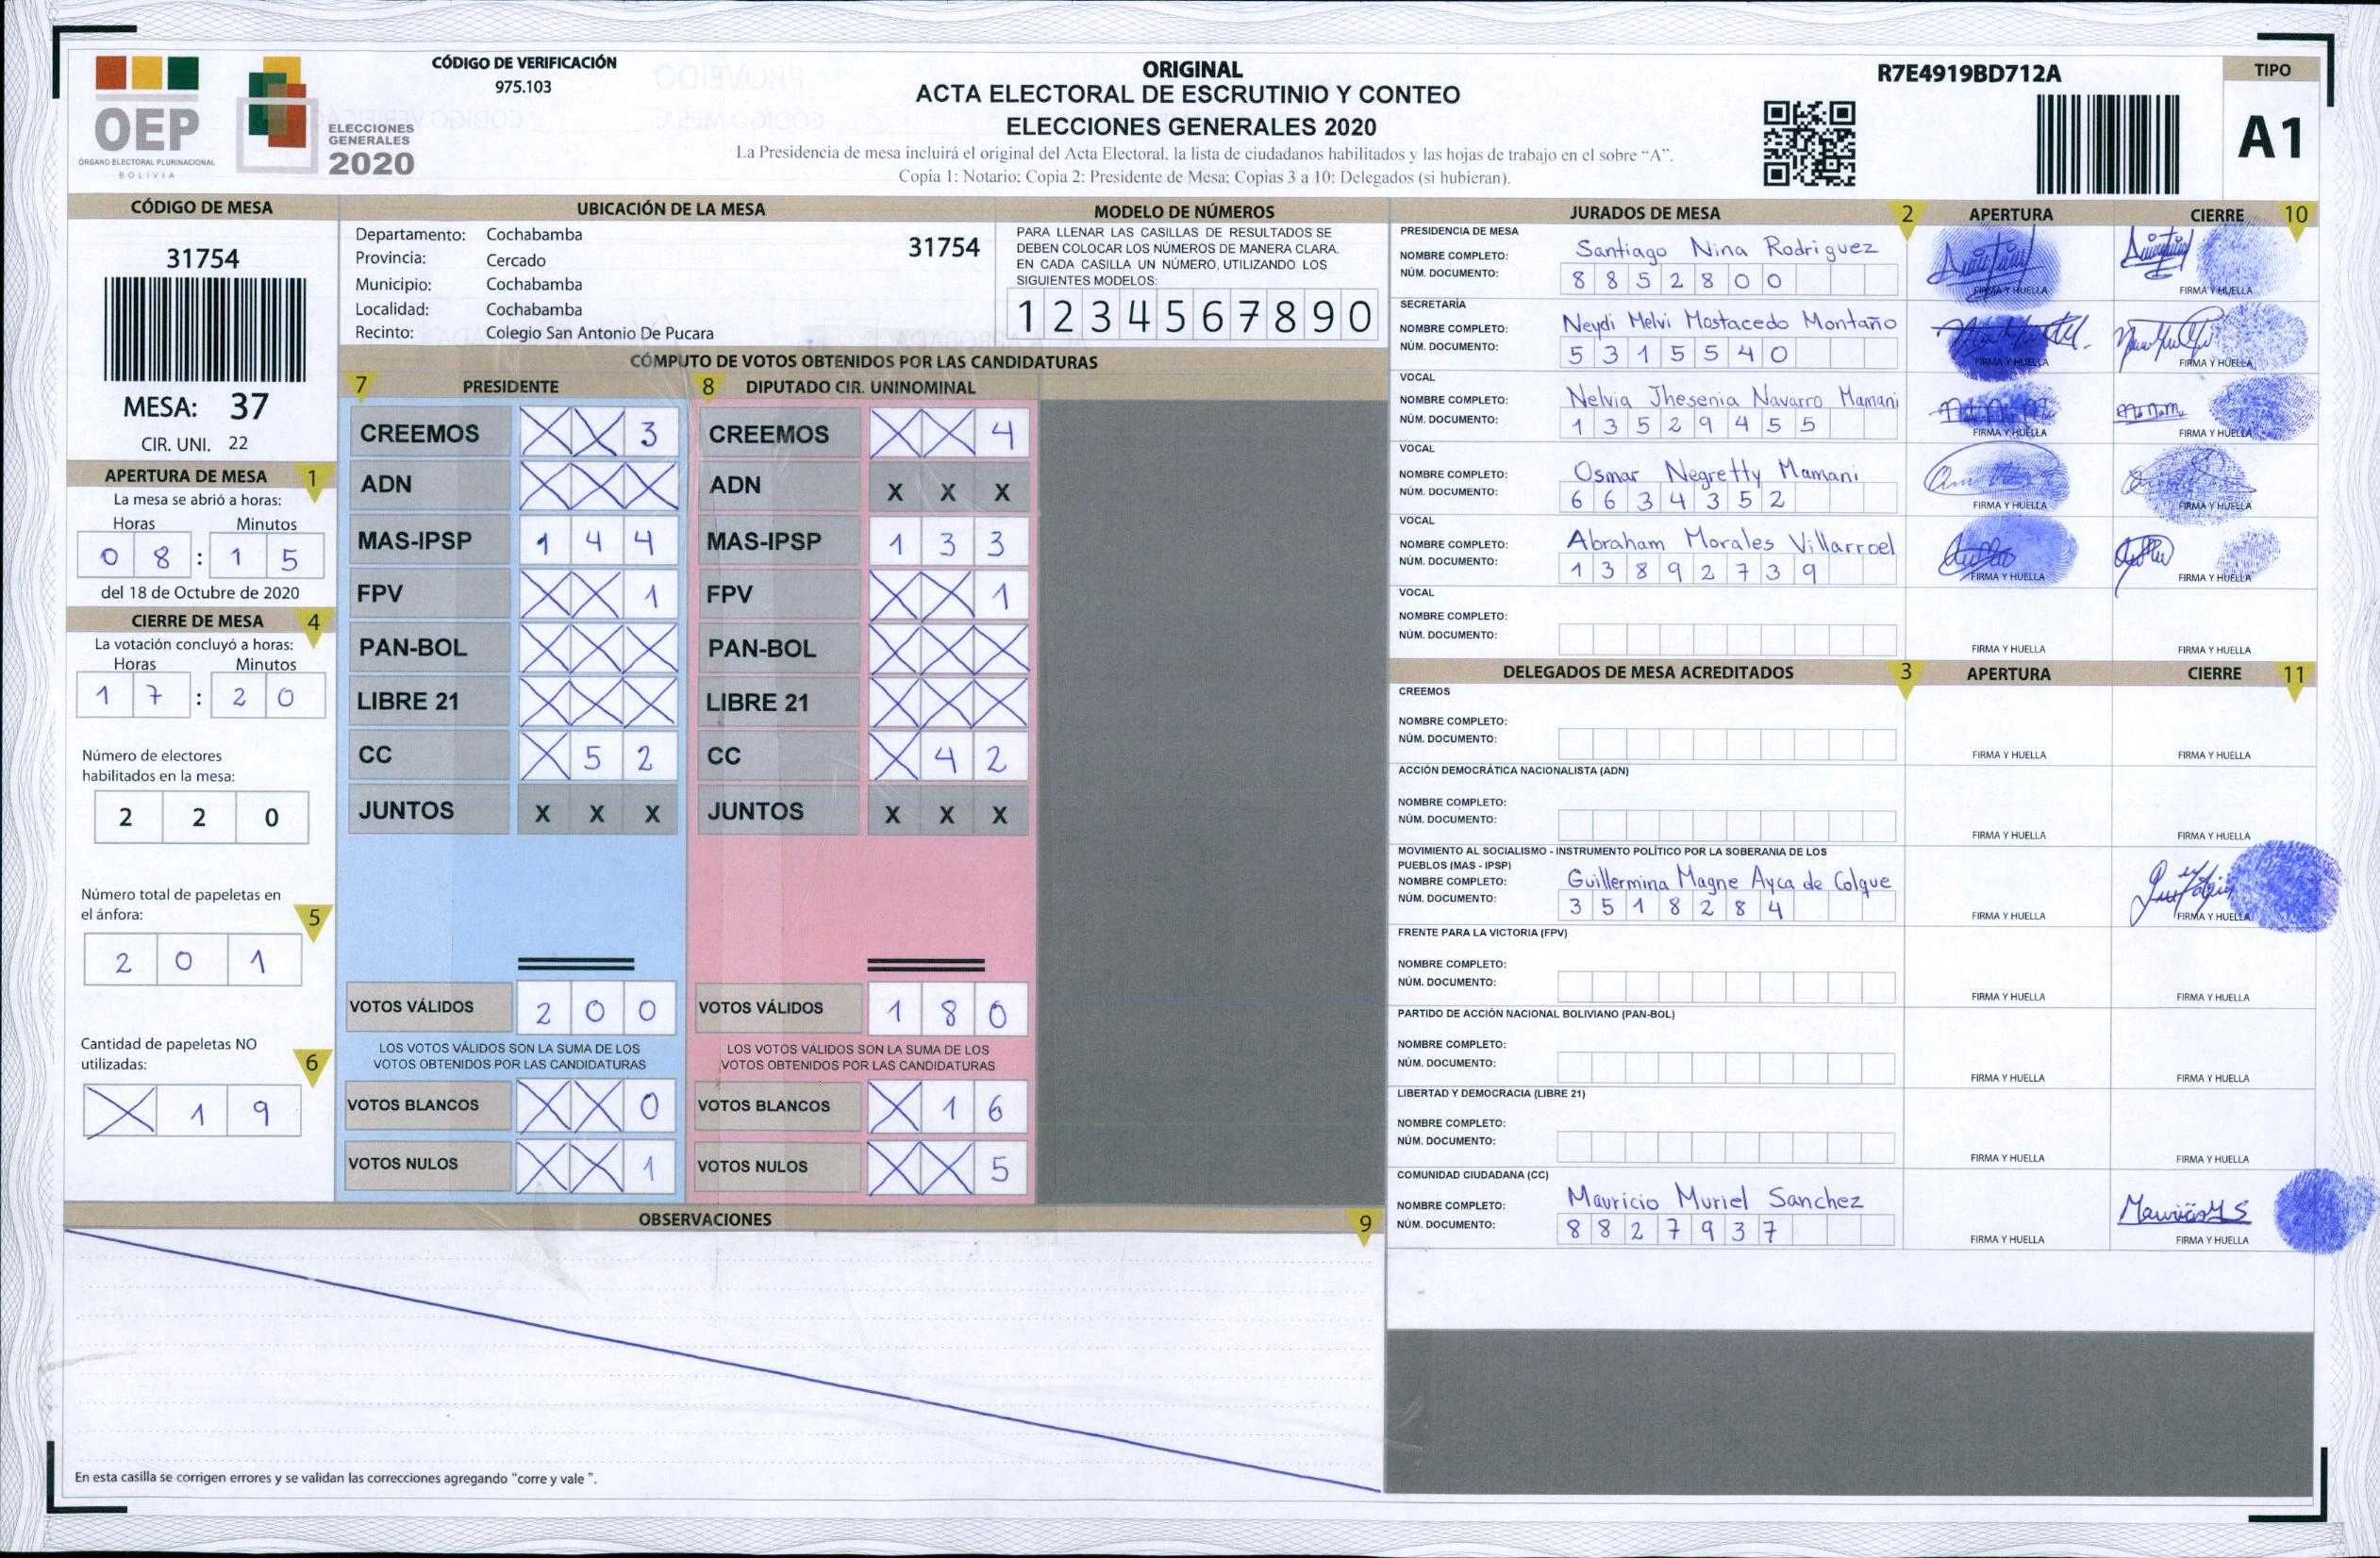 OEP
ÓRGANO ELECTORAL PLURINACIONAL
BOLIVIA
ELECCIONES
GENERALES
2020
CÓDIGO DE VERIFICACIÓN
975.103
ORIGINAL
ACTA ELECTORAL DE ESCRUTINIO Y CONTEO
ELECCIONES GENERALES 2020
La Presidencia de mesa incluirá el original del Acta Electoral, la lista de ciudadanos habilitados y las hojas de trabajo en el sobre "A".
Copia 1: Notario; Copia 2: Presidente de Mesa; Copias 3 a 10: Delegados (si hubieran).
R7E4919BD712A
TIPO
A1
CÓDIGO DE MESA
31754
MESA: 37
CIR. UNI. 22
APERTURA DE MESA 1
La mesa se abrió a horas:
Horas Minutos
0 8 : 1 5
del 18 de Octubre de 2020
CIERRE DE MESA 4
La votación concluyó a horas:
Horas Minutos
1 7 : 2 0
Número de electores
habilitados en la mesa:
2 2 0
Número total de papeletas en
el ánfora: 5
2 0 1
Cantidad de papeletas NO
utilizadas: 6
X 1 9
UBICACIÓN DE LA MESA
Departamento: Cochabamba
31754
Provincia: Cercado
Municipio: Cochabamba
Localidad: Cochabamba
Recinto: Colegio San Antonio De Pucara
MODELO DE NÚMEROS
PARA LLENAR LAS CASILLAS DE RESULTADOS SE
DEBEN COLOCAR LOS NÚMEROS DE MANERA CLARA.
EN CADA CASILLA UN NÚMERO, UTILIZANDO LOS
SIGUIENTES MODELOS:
1 2 3 4 5 6 7 8 9 0
CÓMPUTO DE VOTOS OBTENIDOS POR LAS CANDIDATURAS
7 PRESIDENTE 8 DIPUTADO CIR. UNINOMINAL
CREEMOS X X 3 CREEMOS X X 4
ADN X X X ADN X X X
MAS-IPSP 1 4 4 MAS-IPSP 1 3 3
FPV X X 1 FPV X X 1
PAN-BOL X X X PAN-BOL X X X
LIBRE 21 X X X LIBRE 21 X X X
CC X 5 2 CC X 4 2
JUNTOS X X X JUNTOS X X X
VOTOS VÁLIDOS 2 0 0 VOTOS VÁLIDOS 1 8 0
LOS VOTOS VÁLIDOS SON LA SUMA DE LOS LOS VOTOS VÁLIDOS SON LA SUMA DE LOS
VOTOS OBTENIDOS POR LAS CANDIDATURAS VOTOS OBTENIDOS POR LAS CANDIDATURAS
VOTOS BLANCOS X X 0 VOTOS BLANCOS X 1 6
VOTOS NULOS X X 1 VOTOS NULOS X X 5
OBSERVACIONES 9
En esta casilla se corrigen errores y se validan las correcciones agregando "corre y vale ".
JURADOS DE MESA 2 APERTURA CIERRE 10
PRESIDENCIA DE MESA
NOMBRE COMPLETO: Santiago Nina Rodriguez
NÚM. DOCUMENTO: 8 8 5 2 8 0 0
FIRMA Y HUELLA FIRMA Y HUELLA
SECRETARÍA
NOMBRE COMPLETO: Neydi Melvi Mostacedo Montaño
NÚM. DOCUMENTO: 5 3 1 5 5 4 0
FIRMA Y HUELLA FIRMA Y HUELLA
VOCAL
NOMBRE COMPLETO: Nelvia Jhesenia Navarro Mamani
NÚM. DOCUMENTO: 1 3 5 2 9 4 5 5
FIRMA Y HUELLA FIRMA Y HUELLA
VOCAL
NOMBRE COMPLETO: Osmar Negretty Mamani
NÚM. DOCUMENTO: 6 6 3 4 3 5 2
FIRMA Y HUELLA FIRMA Y HUELLA
VOCAL
NOMBRE COMPLETO: Abraham Morales Villarroel
NÚM. DOCUMENTO: 1 3 8 9 2 7 3 9
FIRMA Y HUELLA FIRMA Y HUELLA
VOCAL
NOMBRE COMPLETO:
NÚM. DOCUMENTO:
FIRMA Y HUELLA FIRMA Y HUELLA
DELEGADOS DE MESA ACREDITADOS 3 APERTURA CIERRE 11
CREEMOS
NOMBRE COMPLETO:
NÚM. DOCUMENTO:
FIRMA Y HUELLA FIRMA Y HUELLA
ACCIÓN DEMOCRÁTICA NACIONALISTA (ADN)
NOMBRE COMPLETO:
NÚM. DOCUMENTO:
FIRMA Y HUELLA FIRMA Y HUELLA
MOVIMIENTO AL SOCIALISMO - INSTRUMENTO POLÍTICO POR LA SOBERANIA DE LOS
PUEBLOS (MAS - IPSP)
NOMBRE COMPLETO: Guillermina Magne Ayca de Colque
NÚM. DOCUMENTO: 3 5 1 8 2 8 4
FIRMA Y HUELLA FIRMA Y HUELLA
FRENTE PARA LA VICTORIA (FPV)
NOMBRE COMPLETO:
NÚM. DOCUMENTO:
FIRMA Y HUELLA FIRMA Y HUELLA
PARTIDO DE ACCIÓN NACIONAL BOLIVIANO (PAN-BOL)
NOMBRE COMPLETO:
NÚM. DOCUMENTO:
FIRMA Y HUELLA FIRMA Y HUELLA
LIBERTAD Y DEMOCRACIA (LIBRE 21)
NOMBRE COMPLETO:
NÚM. DOCUMENTO:
FIRMA Y HUELLA FIRMA Y HUELLA
COMUNIDAD CIUDADANA (CC)
NOMBRE COMPLETO: Mauricio Muriel Sanchez
NÚM. DOCUMENTO: 8 8 2 7 9 3 7
Mauricio M S
FIRMA Y HUELLA FIRMA Y HUELLA